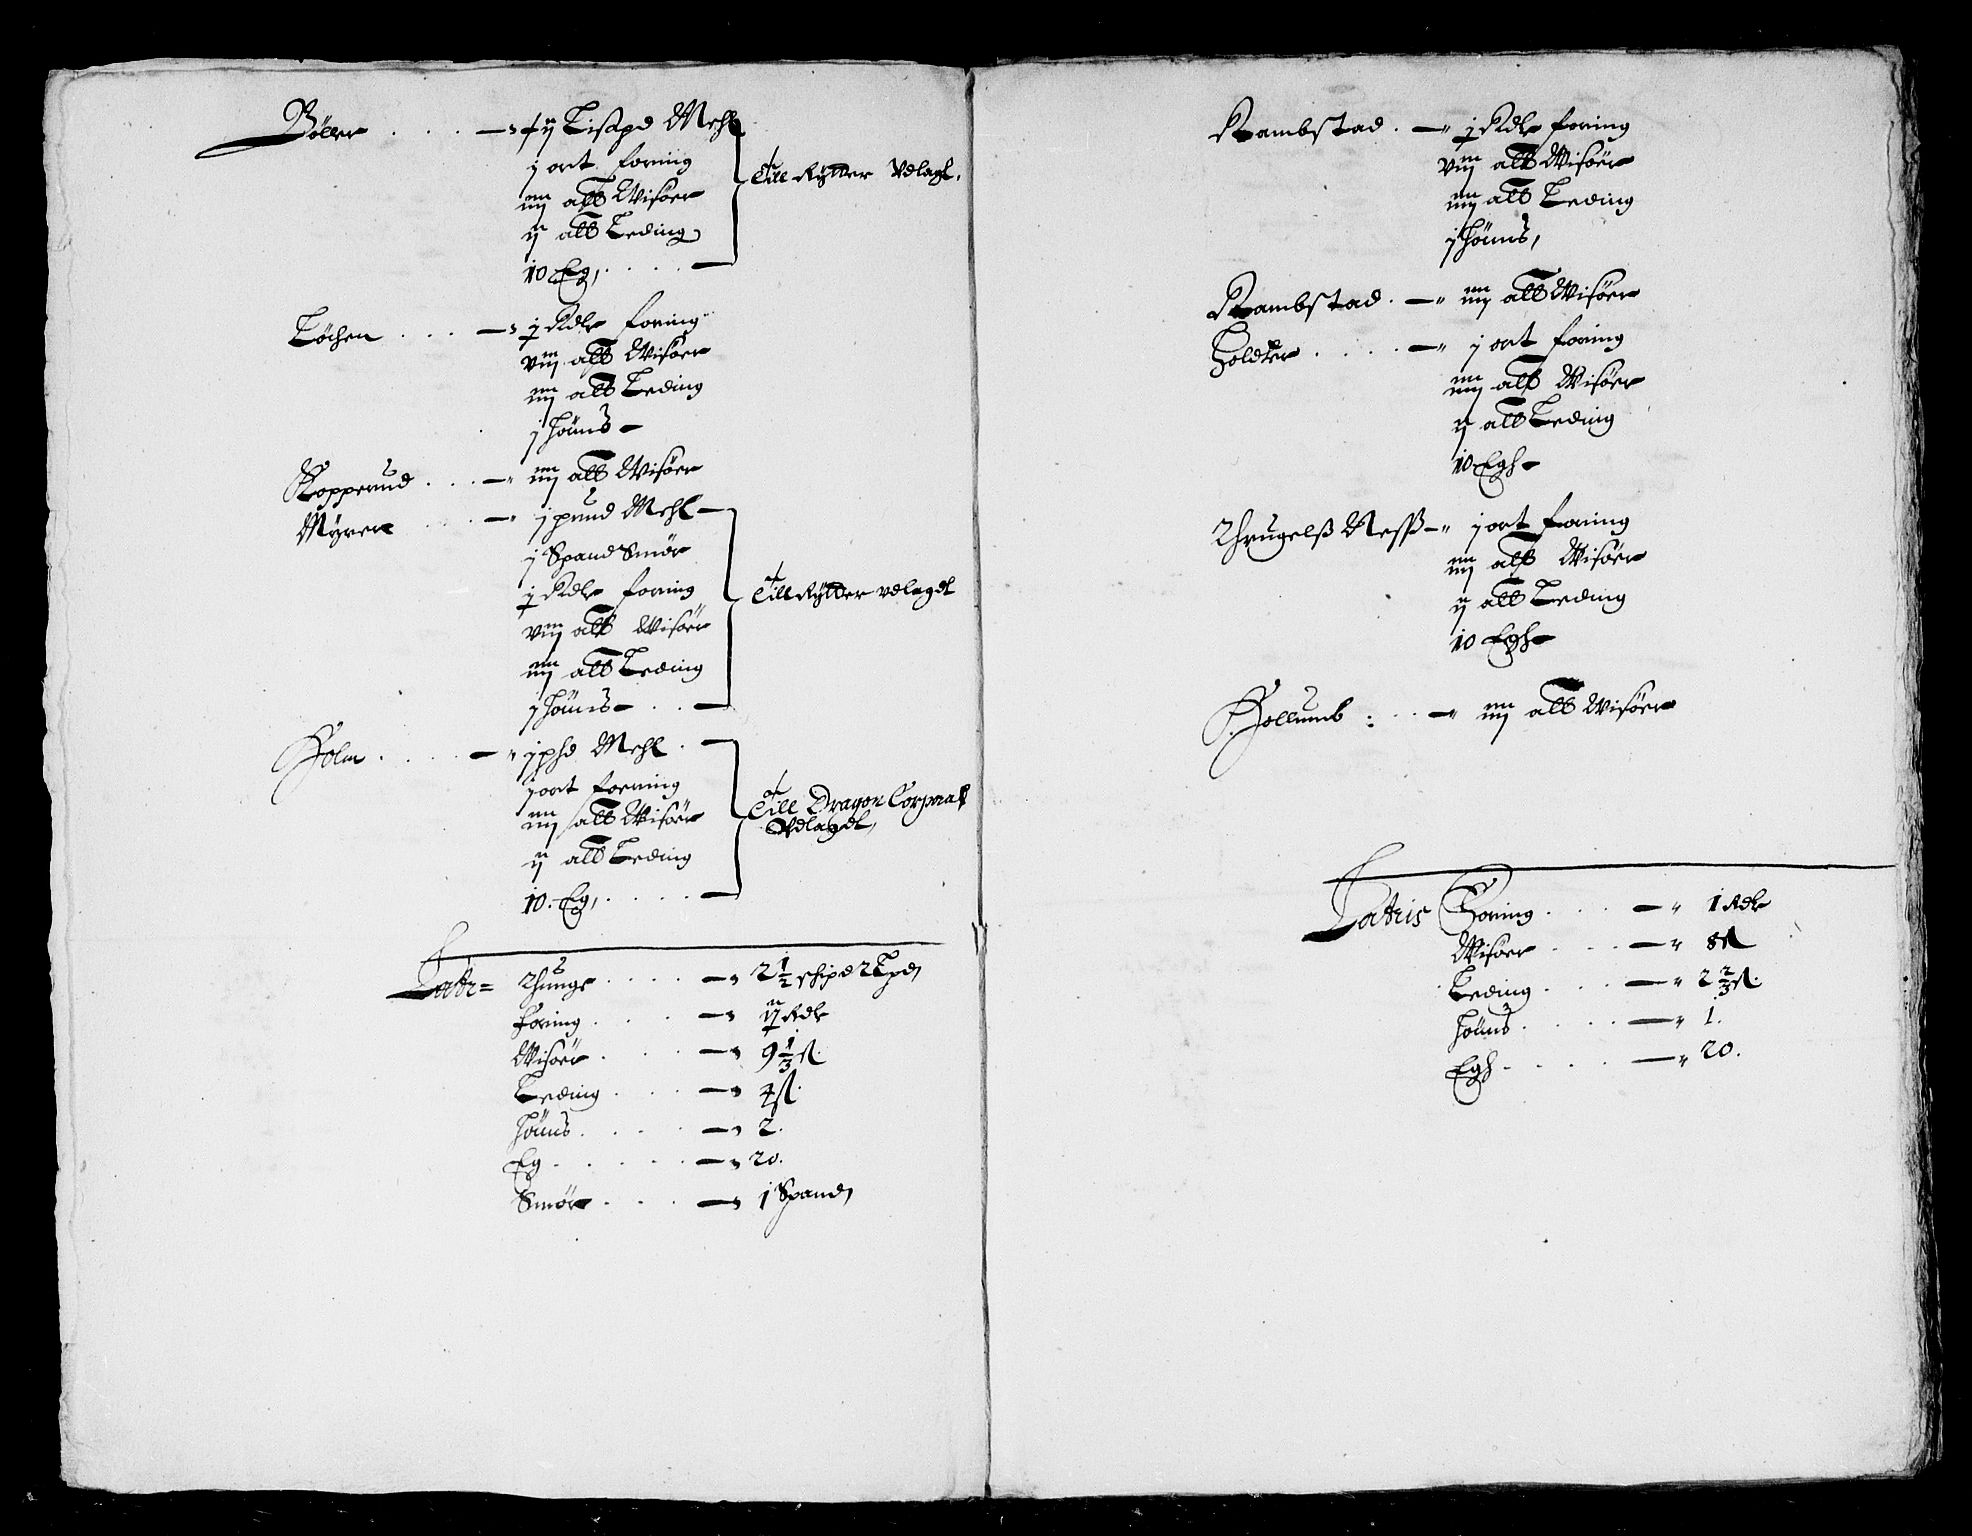 Böller . . . — ij Lispd Mehl
j ort foring
iiij alb Wisöer
ij alb Leding
10 Eg,
Till Rÿtter Vdlagt.
Löchen . . . — j Rdlr foring
viij alb Wisöer
iiij alb Leding
j höuns —
Kopperud . . . — iiij alb Wisöer
Mÿrer . . . — j pund Mehl —
j Spand Smör
j Rdlr foring
viij alb Wisöer
iiij alb Leding
j höuns —
Till Rÿtter vdlagdt
Holm . . . . — j phd Mehl .
j ort foering
iiij alb Wisöer
ij alb Leding
10. Eg, . . . .
Till Dragon Corporal
Vdlagdt,
Latr= Thunge . . . . — 2 1/2 schipd 2 Lpd
foring . . . . — ij Rdlr
Wisöer . . . — 9 1/3 ß.
Leding . . . — 4 ß.
höuns . . . . — 2.
Eg . . . . . — 20.
Smör . . . — 1 Spand
Rambstad . — j Rdlr foring
viij alb Wisöer
iiij alb Leding
j höuns,
Rambstad . — iiij alb Wisöer
Holdter . . . . — j ort foring
iiij alb Wisöer
ij alb Leding
10 Egh —
Thrugelß Neß — j ort foring
iiij alb Wisöer
ij alb Leding
10 Egh —
Hollumb : . . — iiij alb Wisöer
Lateris Foring . . . — 1 Rdlr
Wisöer . . . — 8 ß
Leding . . . — 2 2/3 ß.
höuns . . . . — 1.
Egh . . . . — 20.